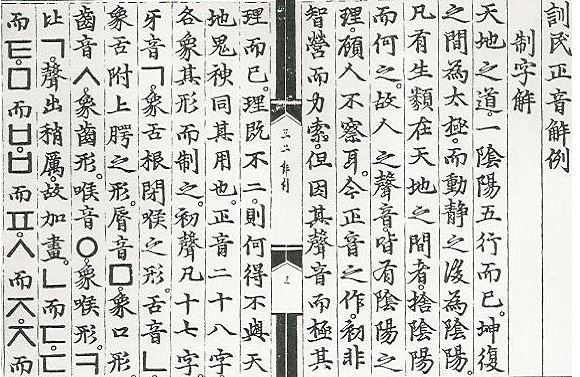 訓民正音解例
制字解
天地之道。一陰陽五行而已。坤復
之間為太極。而動靜之後為陰陽。
凡有生類在天地之間者。捨陰陽
而何之。故人之聲音。皆有陰陽之
理。顧人不察耳。今正音之作。初非
智營而力索。但因其聲音而極其
理而已。理既不二。則何得不與天
地鬼神同其用也。正音二十八字。
各象其形而制之。初聲凡十七字。
牙音ㄱ。象舌根閉喉之形。舌音ㄴ。
象舌附上腭之形。脣音ㅁ。象口形。
齒音ㅅ。象齒形。喉音ㅇ。象喉形。ㅋ
比ㄱ。聲出稍厲。故加畫。ㄴ而ㄷ。ㄷ
而ㅌ。ㅁ而ㅂ。ㅂ而ㅍ。ㅅ而ㅈ。ㅈ而